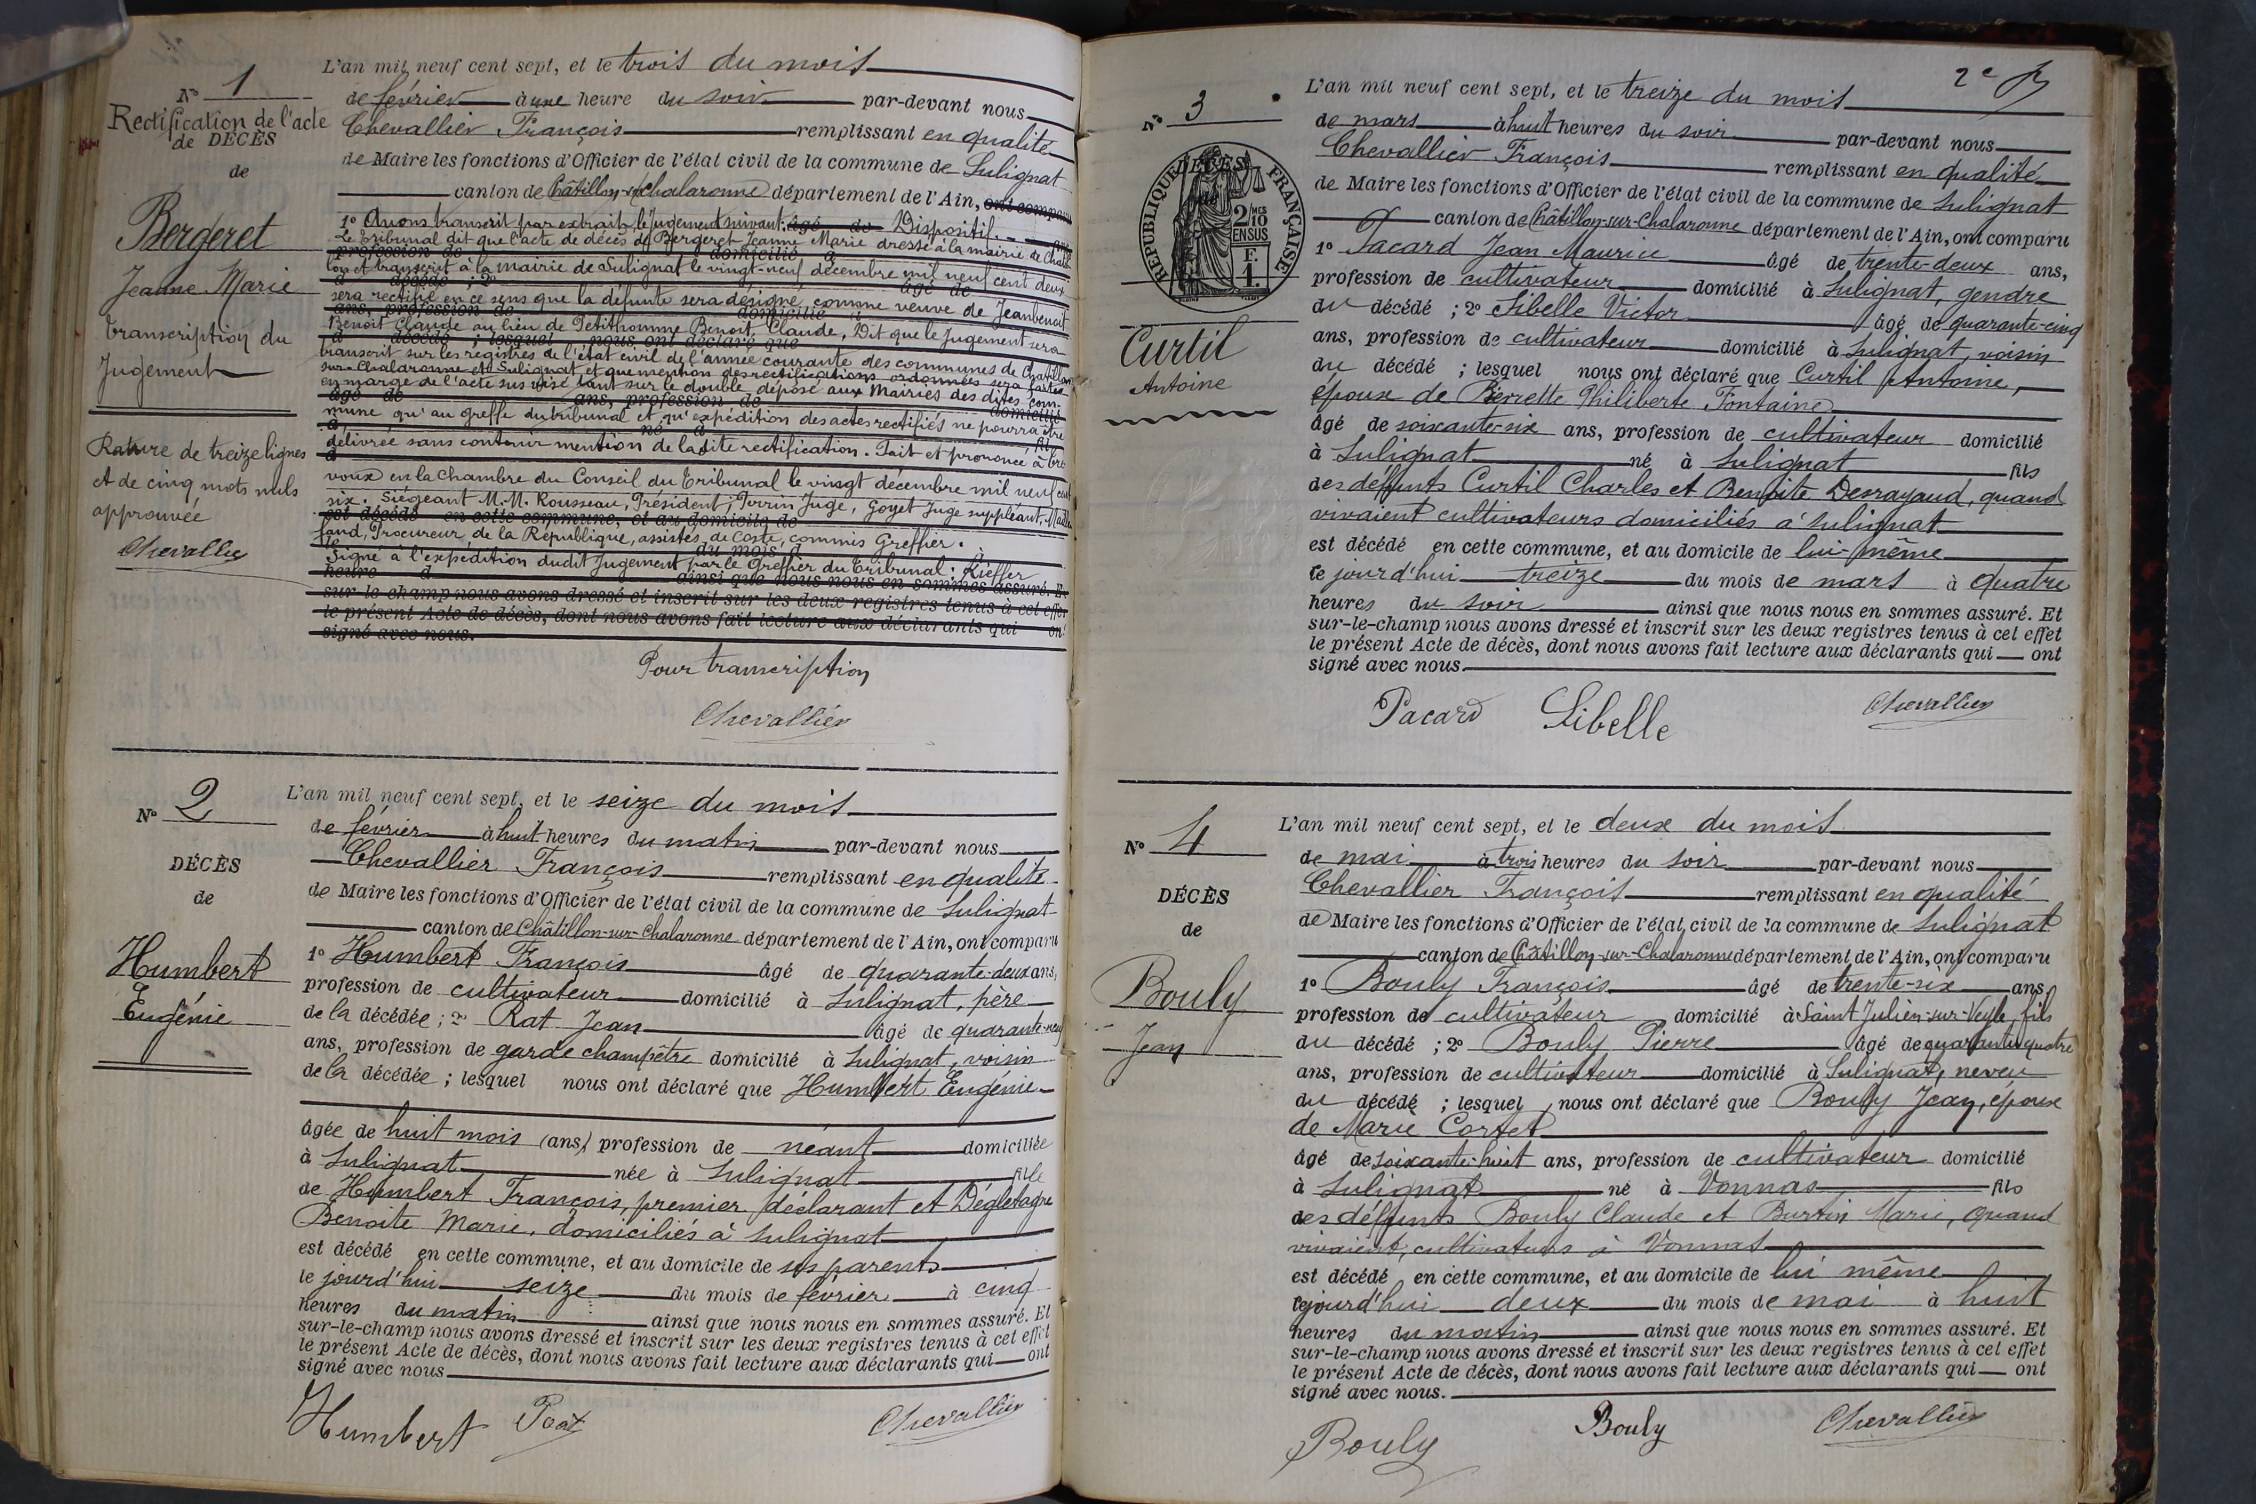 N° 1
Rectification de l'acte
de DÉCÈS
de
Bergeret
Jeanne Marie
Transcription du
Jugement
Rature de treize lignes
et de cinq mots nuls
approuvée
Chevallier
L'an mil neuf cent sept, et le trois du mois
de février à une heure du soir par-devant nous
Chevallier François remplissant en qualité
de Maire les fonctions d'Officier de l'état civil de la commune de Sulignat
canton de Châtillon-sur-Chalaronne département de l'Ain, ont comparu
1° Avons transcrit par extrait le Jugement suivant: âgé de Dispositif.
Le Tribunal dit que l'acte de décès de Bergeret Jeanne Marie dressé à la mairie de Chatil-
profession de domicilié à
lon et transcrit à la mairie de Sulignat le vingt-neuf décembre mil neuf cent deux
d décédé ; 2° âgé de
sera rectifié en ce sens que la défunte sera désigné comme veuve de Jeanbenoit
ans, profession de domicilié à
Benoit Claude au lieu de Petithomme Benoit Claude, Dit que le Jugement sera
d décédé ; lesquel nous ont déclaré que
transcrit sur les registres de l'état civil de l'année courante des communes de Chatillon
sur-Chalaronne et Sulignat et que mention des rectifications ordonnées sera faite
en marge de l'acte sus visé tant sur le double déposé aux Mairies des dites com-
âgé de ans, profession de domicilié
mune qu'au greffe du tribunal et qu'expédition des actes rectifiés ne pourra être
à né à fil
délivrée sans contenir mention de ladite rectification. Fait et prononcé à Tré
d
voux en la Chambre du Conseil du Tribunal le vingt décembre mil neuf cent
six. Siégeant M.M. Rousseau, Président, Perrin Juge, Goyet Juge suppléant,
est décédé en cette commune, et au domicile de
fand, Procureur de la République, assistés de Coste, commis Greffier.
le du mois d à
Signé à l'expédition dudit Jugement par le Greffier du Tribunal: Kieffer
heure d ainsi que nous nous en sommes assuré. Et
sur le champ nous avons dressé et inscrit sur les deux registres tenus à cet effet
le présent Acte de décès, dont nous avons fait lecture aux déclarants qui ont
signé avec nous.
Pour transcription
Chevallier
N° 2
DÉCÈS
de
Humbert
Eugénie
L'an mil neuf cent sept, et le seize du mois
de février à huit heures du matin par-devant nous
Chevallier François remplissant en qualité
de Maire les fonctions d'Officier de l'état civil de la commune de Sulignat
canton de Châtillon-sur-Chalaronne département de l'Ain, ont comparu
1° Humbert François âgé de quarante-deux ans,
profession de cultivateur domicilié à Sulignat, père
de la décédée ; 2° Rat Jean âgé de quarante-neuf
ans, profession de garde champêtre domicilié à Sulignat, voisin
de la décédée ; lesquel nous ont déclaré que Humbert Eugénie
âgée de huit mois (ans) profession de néant domiciliée
à Sulignat née à Sulignat fille
de Humbert François, premier déclarant et Dégletagne
Benoite Marie, domiciliés à Sulignat
est décédé en cette commune, et au domicile de ses parents
le jourd'hui seize du mois de février à cinq
heures du matin ainsi que nous nous en sommes assuré. Et
sur-le-champ nous avons dressé et inscrit sur les deux registres tenus à cet effet
le présent Acte de décès, dont nous avons fait lecture aux déclarants qui ont
signé avec nous
Humbert Rat Chevallier
2e
N° 3
RÉPUBLIQUE FRANÇAISE
DÉCÈS
de
2/MES
10
EN SUS
F.
1.
Curtil
Antoine
L'an mil neuf cent sept, et le treize du mois
de mars à huit heures du soir par-devant nous
Chevallier François remplissant en qualité
de Maire les fonctions d'Officier de l'état civil de la commune de Sulignat
canton de Châtillon-sur-Chalaronne département de l'Ain, ont comparu
1° Pacard Jean Maurice âgé de trente-deux ans,
profession de cultivateur domicilié à Sulignat, gendre
du décédé ; 2° Sibelle Victor âgé de quarante-cinq
ans, profession de cultivateur domicilié à Sulignat, voisin
du décédé ; lesquel nous ont déclaré que Curtil Antoine,
époux de Pierrette Philiberte Fontaine
âgé de soixante-six ans, profession de cultivateur domicilié
à Sulignat né à Sulignat fils
des déffunts Curtil Charles et Benoite Desrayaud, quand
vivaient cultivateurs domiciliés à Sulignat
est décédé en cette commune, et au domicile de lui-même
le jourd'hui treize du mois de mars à quatre
heures du soir ainsi que nous nous en sommes assuré. Et
sur-le-champ nous avons dressé et inscrit sur les deux registres tenus à cet effet
le présent Acte de décès, dont nous avons fait lecture aux déclarants qui ont
signé avec nous
Pacard Sibelle Chevallier
N° 4
DÉCÈS
de
Bouly
Jean
L'an mil neuf cent sept, et le deux du mois
de mai à trois heures du soir par-devant nous
Chevallier François remplissant en qualité
de Maire les fonctions d'Officier de l'état civil de la commune de Sulignat
canton de Châtillon-sur-Chalaronne département de l'Ain, ont comparu
1° Bouly François âgé de trente-six ans,
profession de cultivateur domicilié à Saint Julien-sur-Veyle, fils
du décédé ; 2° Bouly Pierre âgé de quarante quatre
ans, profession de cultivateur domicilié à Sulignat, neveu
du décédé ; lesquel nous ont déclaré que Bouly Jean, époux
de Marie Cortet
âgé de soixante-huit ans, profession de cultivateur domicilié
à Sulignat né à Vonnas fils
des déffunts Bouly Claude et Burtin Marie, quand
vivaient, cultivateurs à Vonnas
est décédé en cette commune, et au domicile de lui même
le jourd'hui deux du mois de mai à huit
heures du matin ainsi que nous nous en sommes assuré. Et
sur-le-champ nous avons dressé et inscrit sur les deux registres tenus à cet effet
le présent Acte de décès, dont nous avons fait lecture aux déclarants qui ont
signé avec nous.
Bouly Bouly Chevallier